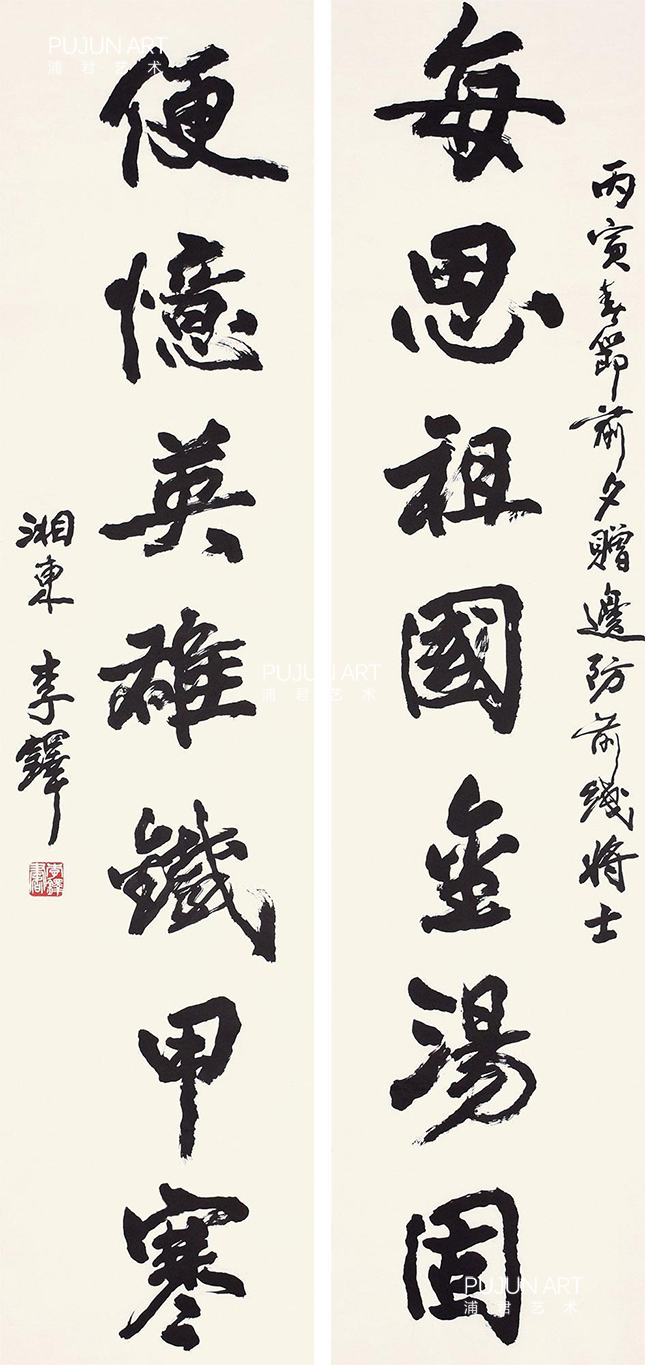 丙寅春節前夕贈邊防前綫將士
每思祖國金湯固
便憶英雄鐵甲寒
湘東 李鐸
李鐸書
PUJUN ART
浦君艺术
PUJUN ART
浦君艺术
PUJUN ART
浦君艺术